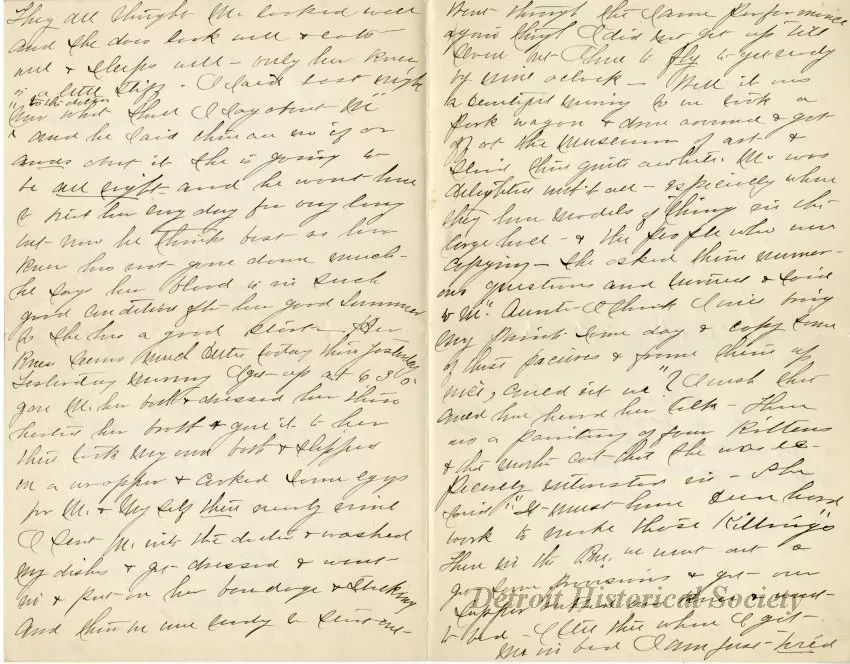 They all thought M. looked well
and she does look well & eats
well & sleeps well - only her knee
is a little stiff - I said last night
to the doctor
"Now what shall I say about M"
and he said there are no ifs or
ands about it she is going to
be all right - and he wont have
to treat her every day for very long
but now he thinks best as her
knee has not gone down much -
he says her blood is in such
good condition after her good Summer
so she has a good start - Her
knee seems much better today than yesterday
Yesterday morning I got up at 6:30 -
gave M. her bath & dressed her then
heated her broth & gave it to her
then took my own bath & slipped
on a wrapper & cooked some eggs
for M. & myself then nearly nine
I sent M. into the doctor & washed
my dishes & got dressed & went
in & put on her bandage & stocking
And then we were ready to start out -
Went through the same performance
again though I did not get up till
seven but I had to fly to get ready
by nine oclock - Well it was
a beautiful morning so we took a
Park wagon & drove around & got
off at the Museum of art &
staid there quite awhile. M. was
delighted with it all - especially where
they have models of things in the
large hall - & the people who were
Copying - She asked them numer-
ous questions and turned & said
to M. "Aunt - I think I will bring
my paint some day & copy some
of those pictures & frame them up
nice, could'nt we"? I wish you
could have heard her talk - There
was a painting of four Kittens
& the mother cat that she was es-
pecially interested in - She
said "It must have been hard
work to make those Kittings"
Then in the Pm. we went out &
got some provisions & got our
supper & went
to bed - I tell you when I get
M. in bed I am just tired
Detroit Historical Society